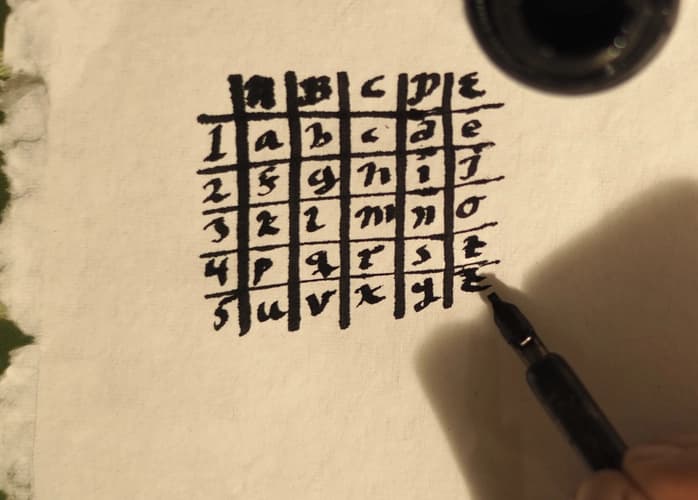 A B C D E
1 a b c d e
2 f g h i j
3 k l m n o
4 p q r s t
5 u v x y z